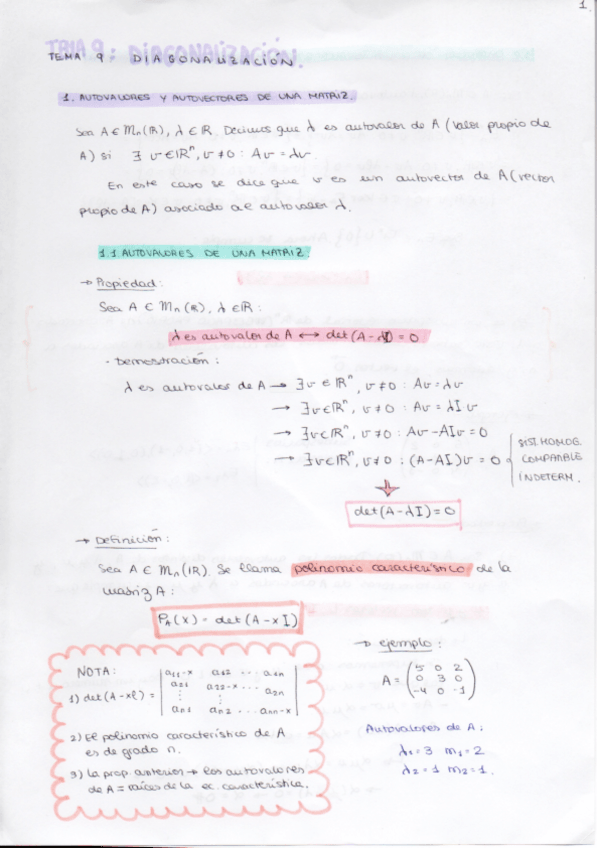 1
TEMA 9: DIAGONALIZACIÓN.
1. AUTOVALORES Y AUTOVECTORES DE UNA MATRIZ.
Sea A ∈ Mn(ℝ), λ ∈ ℝ. Decimos que λ es autovalor de A (valor propio de
A) si ∃ v ∈ ℝⁿ, v ≠ 0 : Av = λv.
En este caso se dice que v es un autovector de A (vector
propio de A) asociado al autovalor λ.
1.1 AUTOVALORES DE UNA MATRIZ.
→ Propiedad:
Sea A ∈ Mn(ℝ), λ ∈ ℝ:
λ es autovalor de A ↔ det(A-λI) = 0
· Demostración:
λ es autovalor de A → ∃v ∈ ℝⁿ, v ≠ 0 : Av = λv
→ ∃v ∈ ℝⁿ, v ≠ 0 : Av = λI v
→ ∃v ∈ ℝⁿ, v ≠ 0 : Av - λIv = 0
→ ∃v ∈ ℝⁿ, v ≠ 0 : (A-λI)v = 0
SIST. HOMOG.
COMPATIBLE
INDETERM.
det(A-λI) = 0
→ Definición:
Sea A ∈ Mn(ℝ). Se llama polinomio característico de la
matriz A:
PA(x) = det(A-xI)
NOTA:
1) det(A-xI) = | a11-x a12 ... a1n
a21 a22-x ... a2n
⋮ ⋮
an1 an2 ... ann-x |
2) El polinomio característico de A
es de grado n.
3) La prop. anterior → los autovalores
de A = raíces de la ec. característica.
→ ejemplo:
A = ( 5 0 2
0 3 0
-4 0 -1 )
Autovalores de A:
λ1=3 m1=2
λ2=1 m2=1.